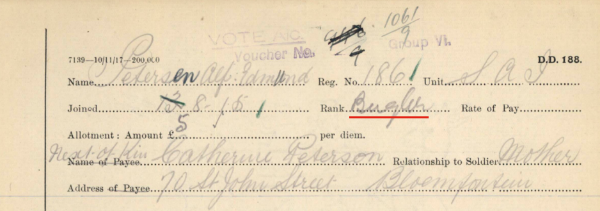 VOTE No. 1061/9
Voucher No. Group VI.
7139—10/11/17—200,000 D.D. 188.
Name Petersen Alf. Edmund Reg. No. 1861 Unit S A I
Joined 13.8.15 Rank Bugler Rate of Pay
Allotment: Amount £5 per diem.
Next of Kin
Name of Payee Catherine Peterson Relationship to Soldier Mother
Address of Payee 70 St John Street Bloemfontein